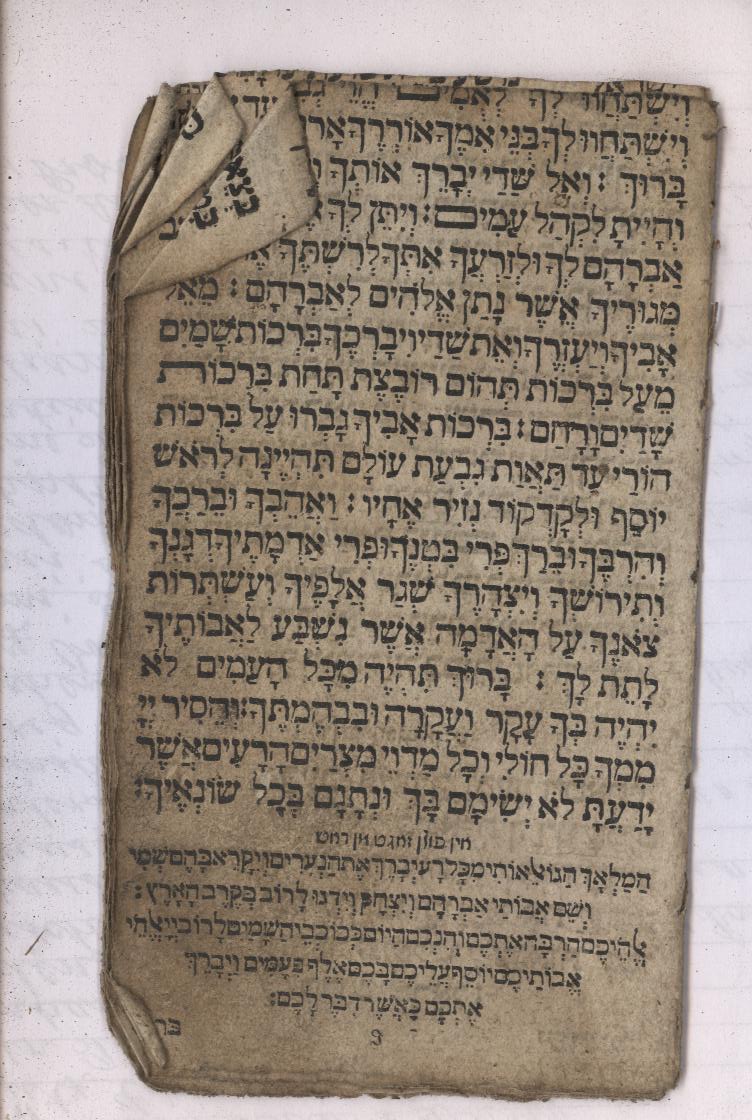 וְיִשְׁתַּחֲווּ לְךָ לְאֻמִּים הֱוֵי
וְיִשְׁתַּחֲווּ לְךָ בְּנֵי אִמֶּךָ אוֹרְרֶיךָ אָר
בָּרוּךְ : וְאֵל שַׁדַּי יְבָרֵךְ אוֹתְךָ
וְהָיִיתָ לִקְהַל עַמִּים : וְיִתֶּן לְךָ
אַבְרָהָם לְךָ וּלְזַרְעֲךָ אִתָּךְ לְרִשְׁתְּךָ
מְגוּרֶיךָ אֲשֶׁר נָתַן אֱלֹהִים לְאַבְרָהָם : מֵאֵל
אָבִיךָ וְיַעְזְרֶךָּ וְאֵת שַׁדַּי וִיבָרְכֶךָּ בִּרְכוֹת שָׁמַיִם
מֵעַל בִּרְכוֹת תְּהוֹם רוֹבֶצֶת תָּחַת בִּרְכוֹת
שָׁדַיִם וָרָחַם : בִּרְכוֹת אָבִיךָ גָּבְרוּ עַל בִּרְכוֹת
הוֹרַי עַד תַּאֲוַת גִּבְעֹת עוֹלָם תִּהְיֶינָה לְרֹאשׁ
יוֹסֵף וּלְקָדְקוֹד נְזִיר אֶחָיו : וַאֲהֵבְךָ וּבֵרַכְךָ
וְהִרְבֶּךָ וּבֵרַךְ פְּרִי בִטְנְךָ וּפְרִי אַדְמָתֶיךָ דְּגָנְךָ
וְתִירוֹשְׁךָ וְיִצְהָרֶךָ שְׁגַר אֲלָפֶיךָ וְעַשְׁתְּרוֹת
צֹאנֶךָ עַל הָאֲדָמָה אֲשֶׁר נִשְׁבַּע לַאֲבוֹתֶיךָ
לָתֵת לָךְ : בָּרוּךְ תִּהְיֶה מִכָּל הָעַמִּים לֹא
יִהְיֶה בְךָ עָקָר וַעֲקָרָה וּבִבְהֶמְתֶּךָ : וְהֵסִיר יְיָ
מִמְּךָ כָּל חוֹלִי וְכָל מַדְוֵי מִצְרַיִם הָרָעִים אֲשֶׁר
יָדַעְתָּ לֹא יְשִׂימָם בָּךְ וּנְתָנָם בְּכָל שׂוֹנְאֶיךָ :
הַמַּלְאָךְ הַגּוֹאֵל אוֹתִי מִכָּל רָע יְבָרֵךְ אֶת הַנְּעָרִים וְיִקָּרֵא בָהֶם שְׁמִי
וְשֵׁם אֲבוֹתַי אַבְרָהָם וְיִצְחָק וְיִדְגּוּ לָרוֹב בְּקֶרֶב הָאָרֶץ :
אֱלֹהֵיכֶם הִרְבָּה אֶתְכֶם וְהִנְּכֶם הַיּוֹם כְּכוֹכְבֵי הַשָּׁמַיִם לָרוֹב יְיָ אֱלֹהֵי
אֲבוֹתֵיכֶם יוֹסֵף עֲלֵיכֶם כָּכֶם אֶלֶף פְּעָמִים וִיבָרֵךְ
אֶתְכֶם כַּאֲשֶׁר דִּבֶּר לָכֶם :